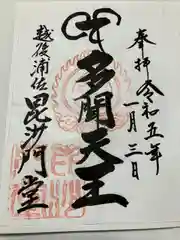 奉拝
令和五年
一月三日
多聞天王
越後浦佐
毘沙門堂